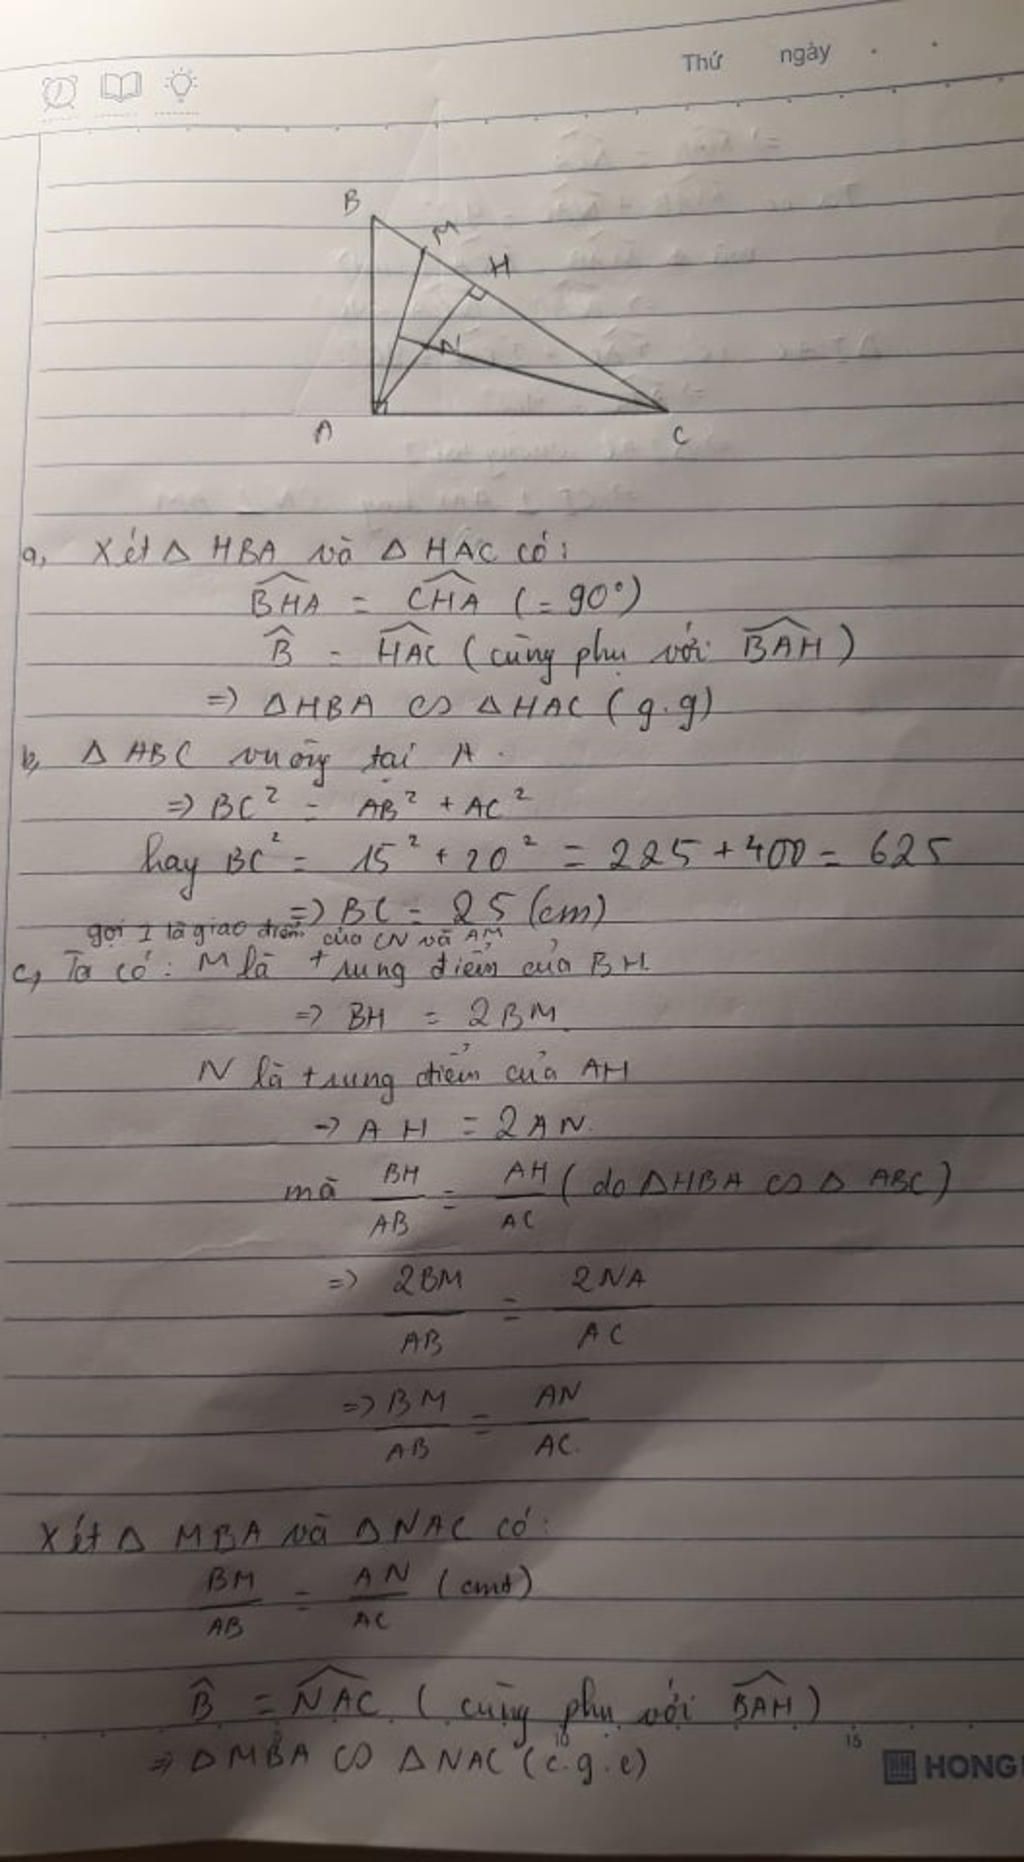 Thứ ngày
B
M
H
N
A
C
a, Xét △ HBA và △ HAC có:
BHA = CHA ( = 90°)
B = HAC ( cùng phụ với BAH )
=> △HBA ∽ △HAC ( g.g)
b, △ ABC vuông tại A .
=> BC² = AB² + AC²
hay BC² = 15² + 20² = 225 + 400 = 625
=> BC = 25 (cm)
gọi I là giao điểm của CN và AM
c, Ta có : M là trung điểm của BH.
=> BH = 2BM
N là trung điểm của AH
=> AH = 2AN.
mà BH/AB = AH/AC ( do △HBA ∽ △ ABC )
=> 2BM/AB = 2NA/AC
=> BM/AB = AN/AC.
Xét △ MBA và △NAC có :
BM/AB = AN/AC ( cmt)
B = NAC ( cùng phụ với BAH )
=> △MBA ∽ △NAC ( c.g.c)
10
15
HONG